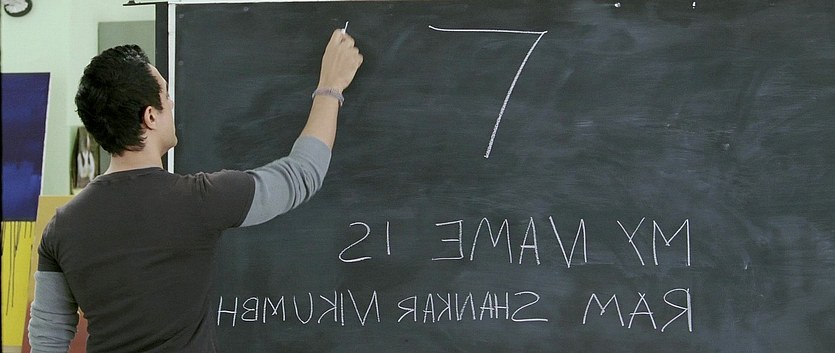 7
MY NAME IS
RAM SHANKAR NIKUMBH